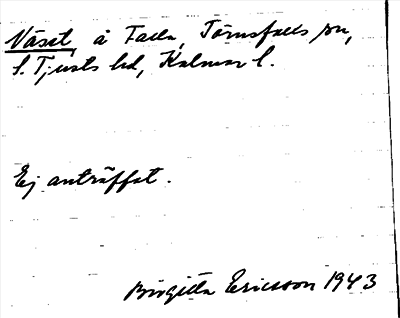 Väset, å Falla, Törnsfalls sn,
S. Tjusts hd, Kalmar l.
Ej anträffat.
Birgitta Ericsson 1943